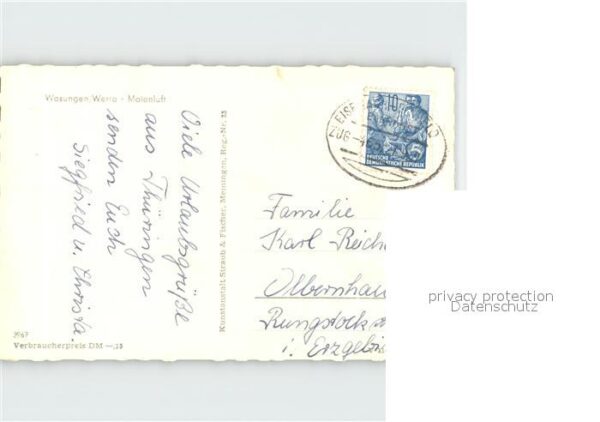 Wasungen Werra - Maienluft
Viele Urlaubsgrüße
aus Thüringen
senden Euch
Siegfried u. Christa.
3967
Verbraucherpreis DM —,15
Kunstanstalt Straub & Fischer, Meiningen, Reg.-Nr. 25
10
ZUG
5
DEUTSCHE
DEMOKRATISCHE REPUBLIK
Familie
Karl Reich
Olbernhau
i. Erzgebir
privacy protection
Datenschutz